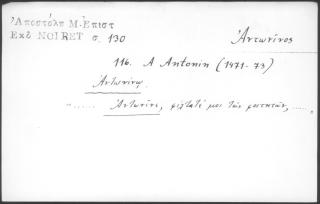 Ἀποστόλη Μ. Ἐπιστ
Ἐκδ NOIRET σ. 130
Ἀντωνῖνος
116. A Antonin (1471-73)
Ἀντωνίνῳ.
"...... Ἀντωνῖνε, φίλτατέ μοι τῶν φοιτητῶν, ......,